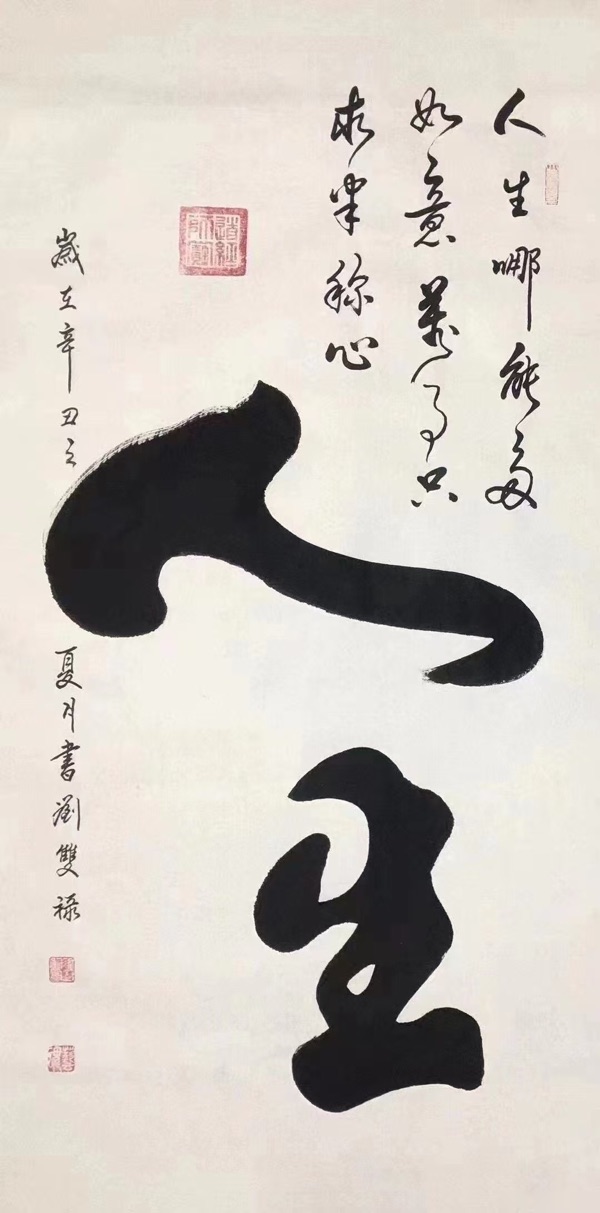 人生哪能多
如意萬事只
求半称心
人生
道經師寶
歲在辛丑之
夏月書劉雙祿